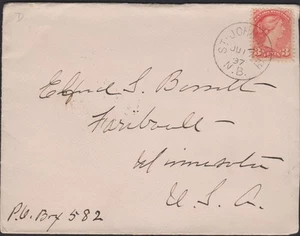 D
ST. JOHN
JU 1
97
N.B.
3 3
Elfred S. Bennett
Faribault
Minnesota
U.S.A.
P.O. Box 582